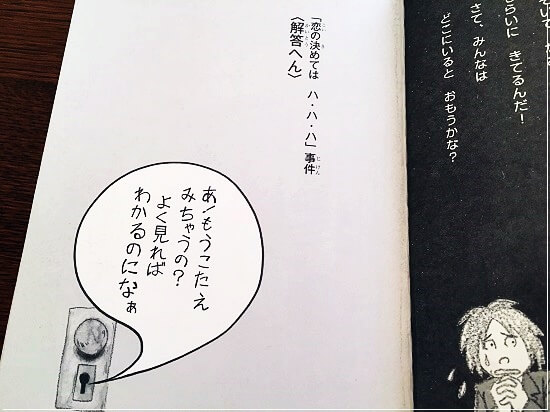 いて
らいに　きてるんだ！
さて、みんなは
どこにいると　おもうかな？
「恋の決めては　ハ・ハ・ハ」事件
〈解答へん〉
あ！もうこたえ
みちゃうの？
よく見れば
わかるのになぁ